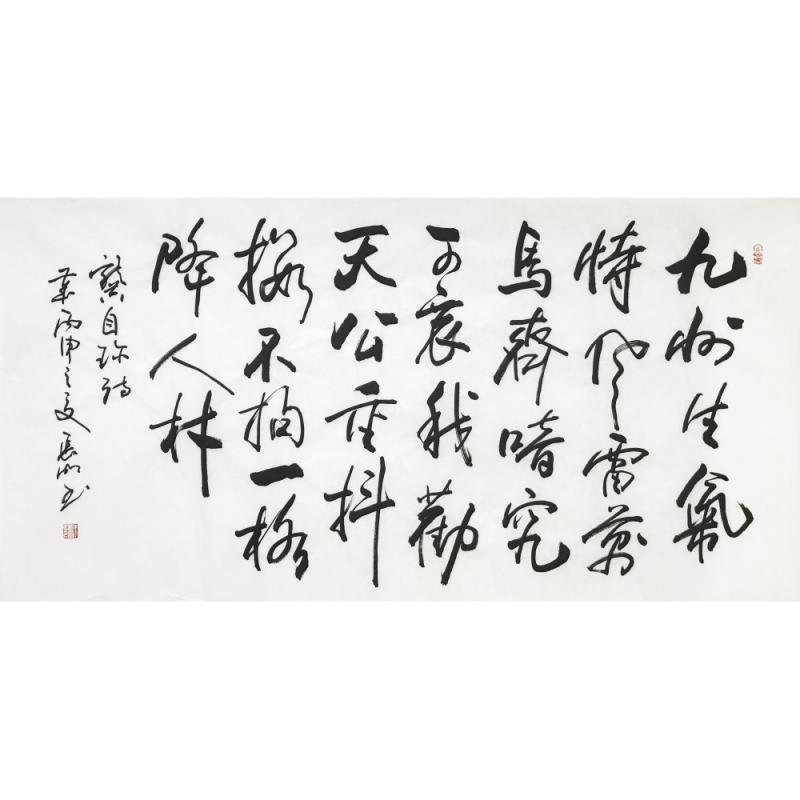 九州生氣
恃風雷萬
馬齊喑究
可哀我勸
天公重抖
擻不拘一格
降人材
龔自珍詩
丙申之夏 書